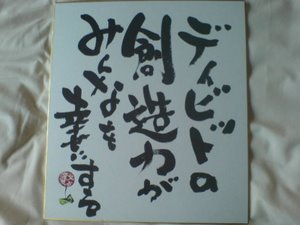 ディビットの
創造力が
みんなを
幸せにする